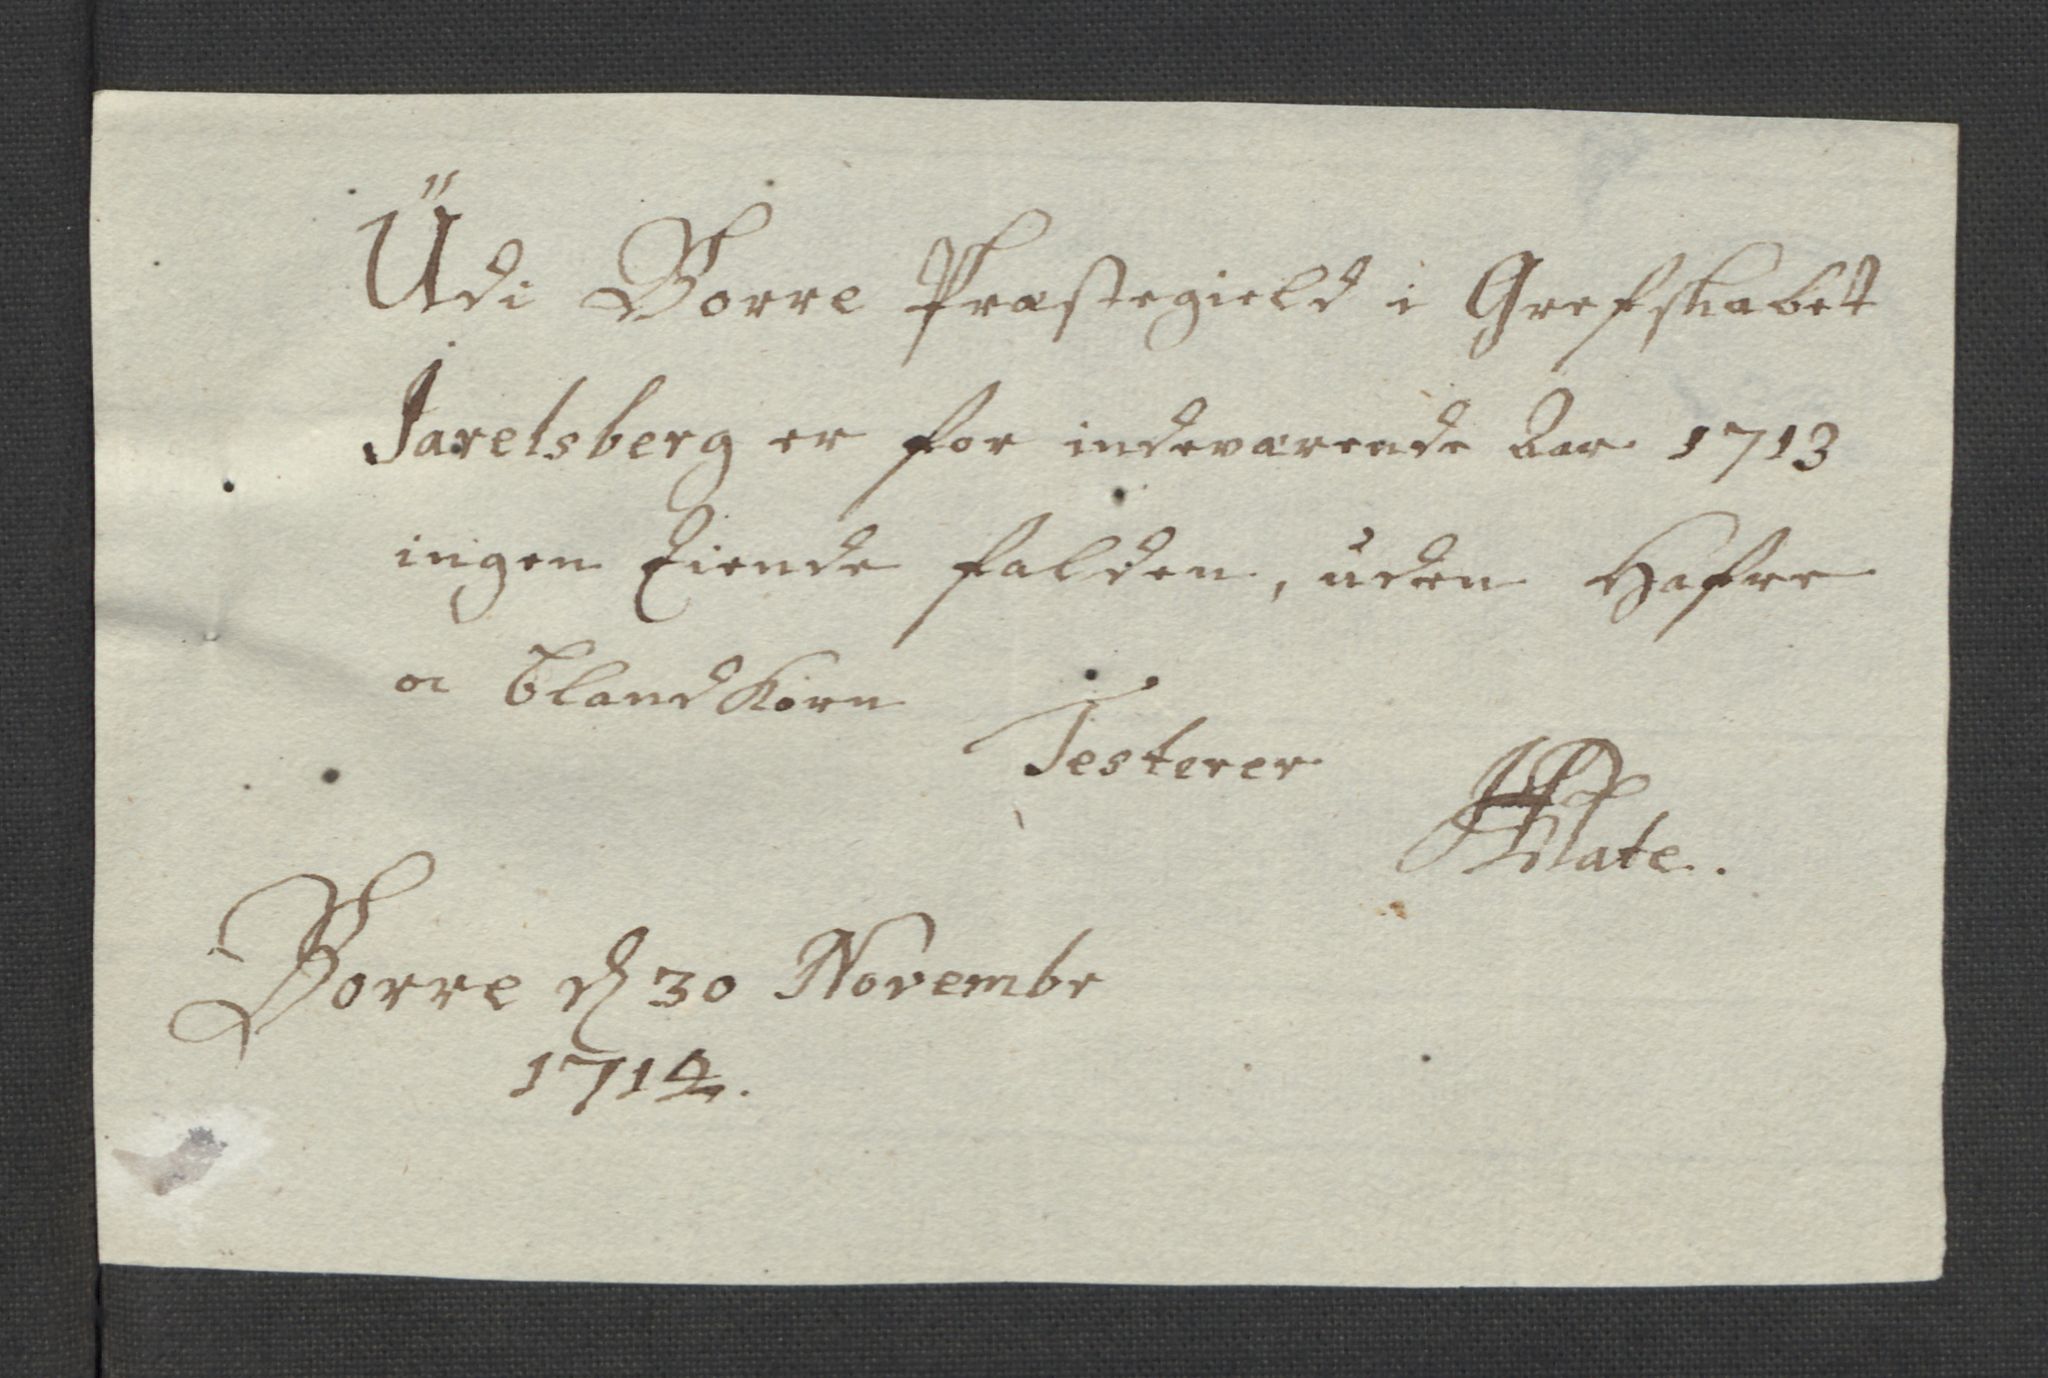 Üdi Borre Præstegield i Grefskabet
Jarelsberg er for indeværende Aar 1713
ingen Tiende falden, uden Hafre
oc Blandkorn
Testerer
HPlate.
Borre d 30 Novembr
1714.